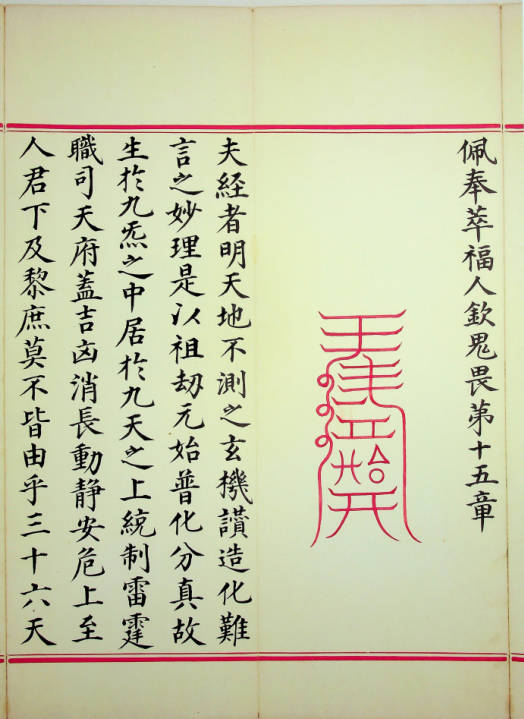 佩奉萃福人欽鬼畏第十五章
夫経者明天地不測之玄機讚造化難
言之妙理是以祖刼元始普化分真故
生於九炁之中居於九天之上統制雷霆
職司天府蓋吉凶消長動静安危上至
人君下及黎庶莫不皆由乎三十六天